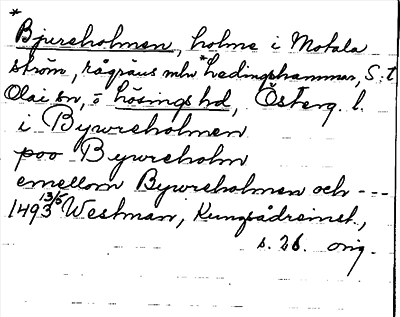 *
Bjureholmen, holme i Motala
ström, rågräns mln *Hedingshammar, S:t
Olai sn, o Lösings hd, Österg. l.
i Bywreholmen
poo Bywreholm
emellom Bywreholmen och ---
1493 13/5 Westman, Kungsådreinst.,
s. 26. orig.